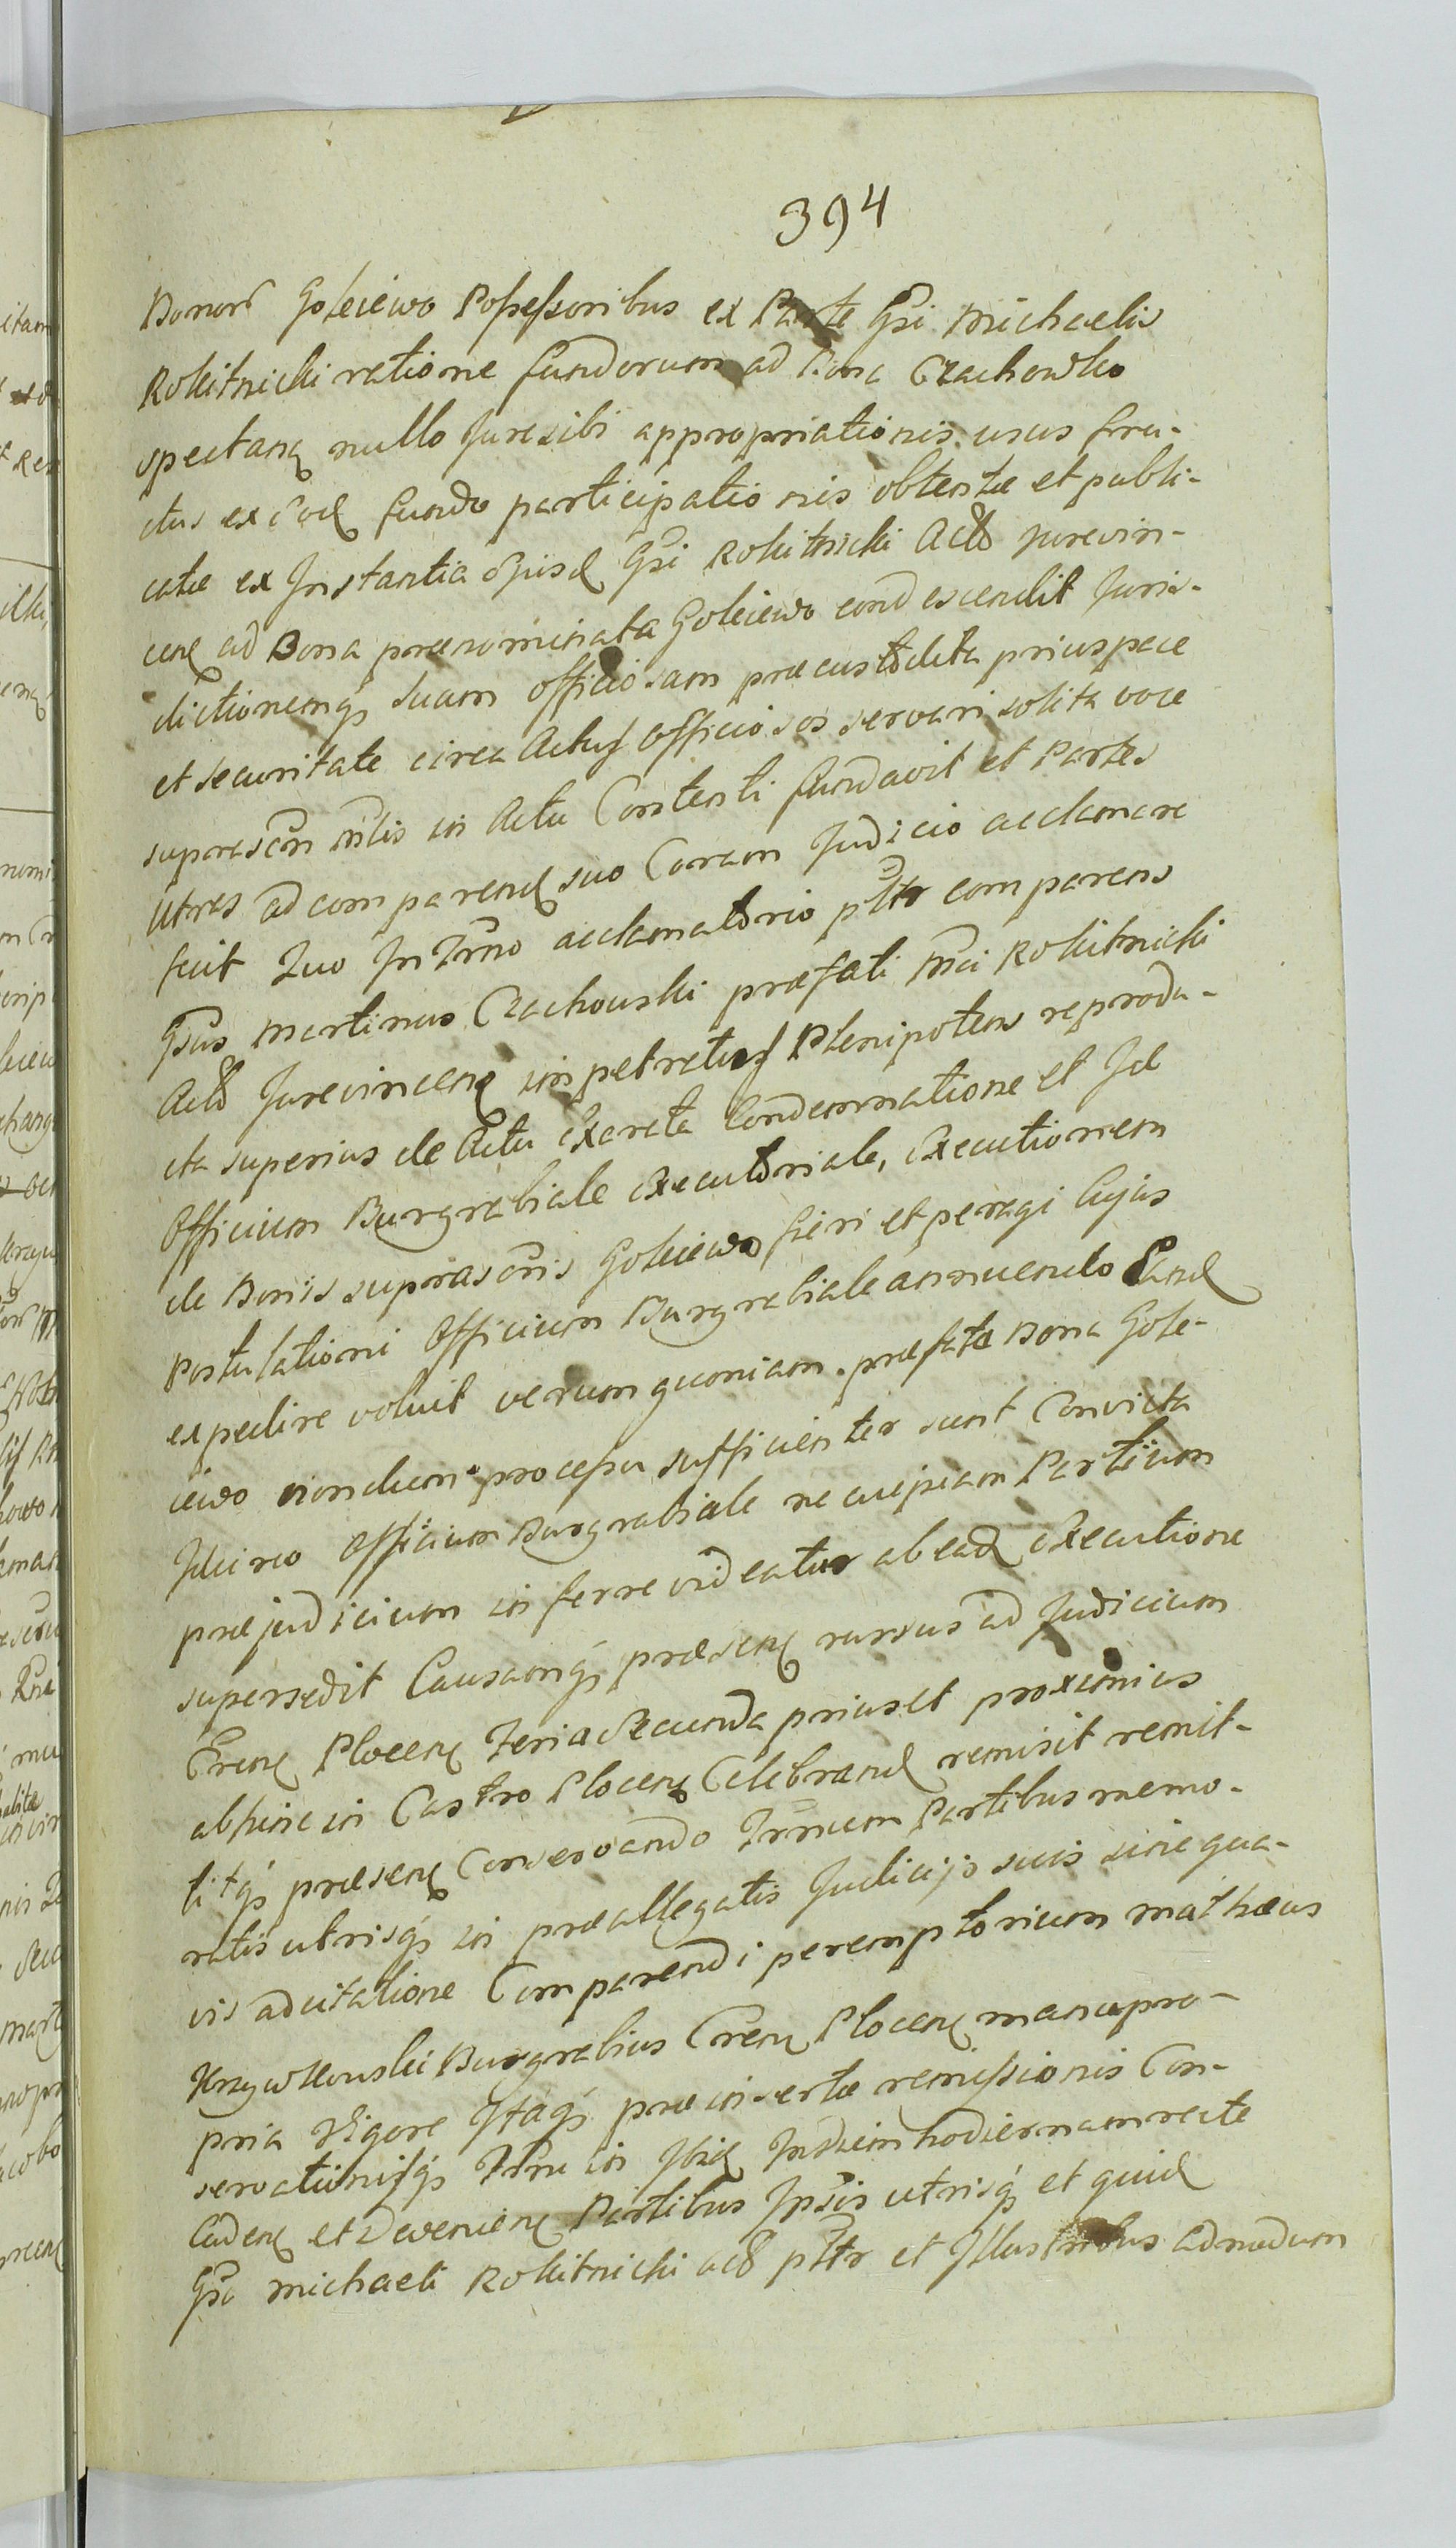 394
Bonor Goleiewo Possessoribus ex Parte Gsi Michaelis
Rokitnicki ratione fundorum ad Bona Czachowko
spectan nullo Jure sibi appropriationis usus fru-
ctus ex eod fundo participationis obtentæ et publi-
catæ ex Instantia ejusd Gsi Rokitnicki Act Jurevin-
cen ad Bona prænominata Goleiewo condescendit Juris-
dictionemq suam officiosam præcustodita prius pace
et securitate circa Actus officiosos servari solita voce
suprascri mlis in Actu Contenti fundavit et Partes
utras ad comparend suo Coram Judicio acclamare
fecit Quo In Trno acclamatorio pltr comparens
Gsus Martinus Czachowski præfati Mci Rokitnicki
Act Jurevincen impetratus Plenipotens reprodu-
cta superius de Actu exarata Condemnatione et Id
Officium Burgrabiale executoriale, executionem
de Bonis suprascris Goleiewo fieri et peragi Cujus
Postulationi Officium Burgrabiale annuendo Eand
expedire voluit verum quoniam præfata Bona Gole-
iewo nondum processu sufficienter sunt Convicta
Idcirco Officium Burgrabiale ne cuipiam Partium
præjudicium inferre videatur ab ead executione
supersedit Causamq præsen rursus ad Judicium
Cren Plocen Feria Secunda prius et proximius
abhinc in Castro Plocen Celebrand remisit remit-
titq præsen Conservando Trnum Partibus memo-
ratis utrisq in præallegatis Judicijs suis sine qua-
vis adcitatione Comparendi peremptorium Mathæus
Krzywkowski Burgrabius Cren Plocen manu pro-
pria Vigore Itaq præinsertæ remissionis Con-
servationisq Trni in Ibid In Diem hodiernam recte
Caden et Devenien Partibus Ipsis utrisq et quid
Gso Michaeli Rokitnicki act pltr et Illustribus admodum